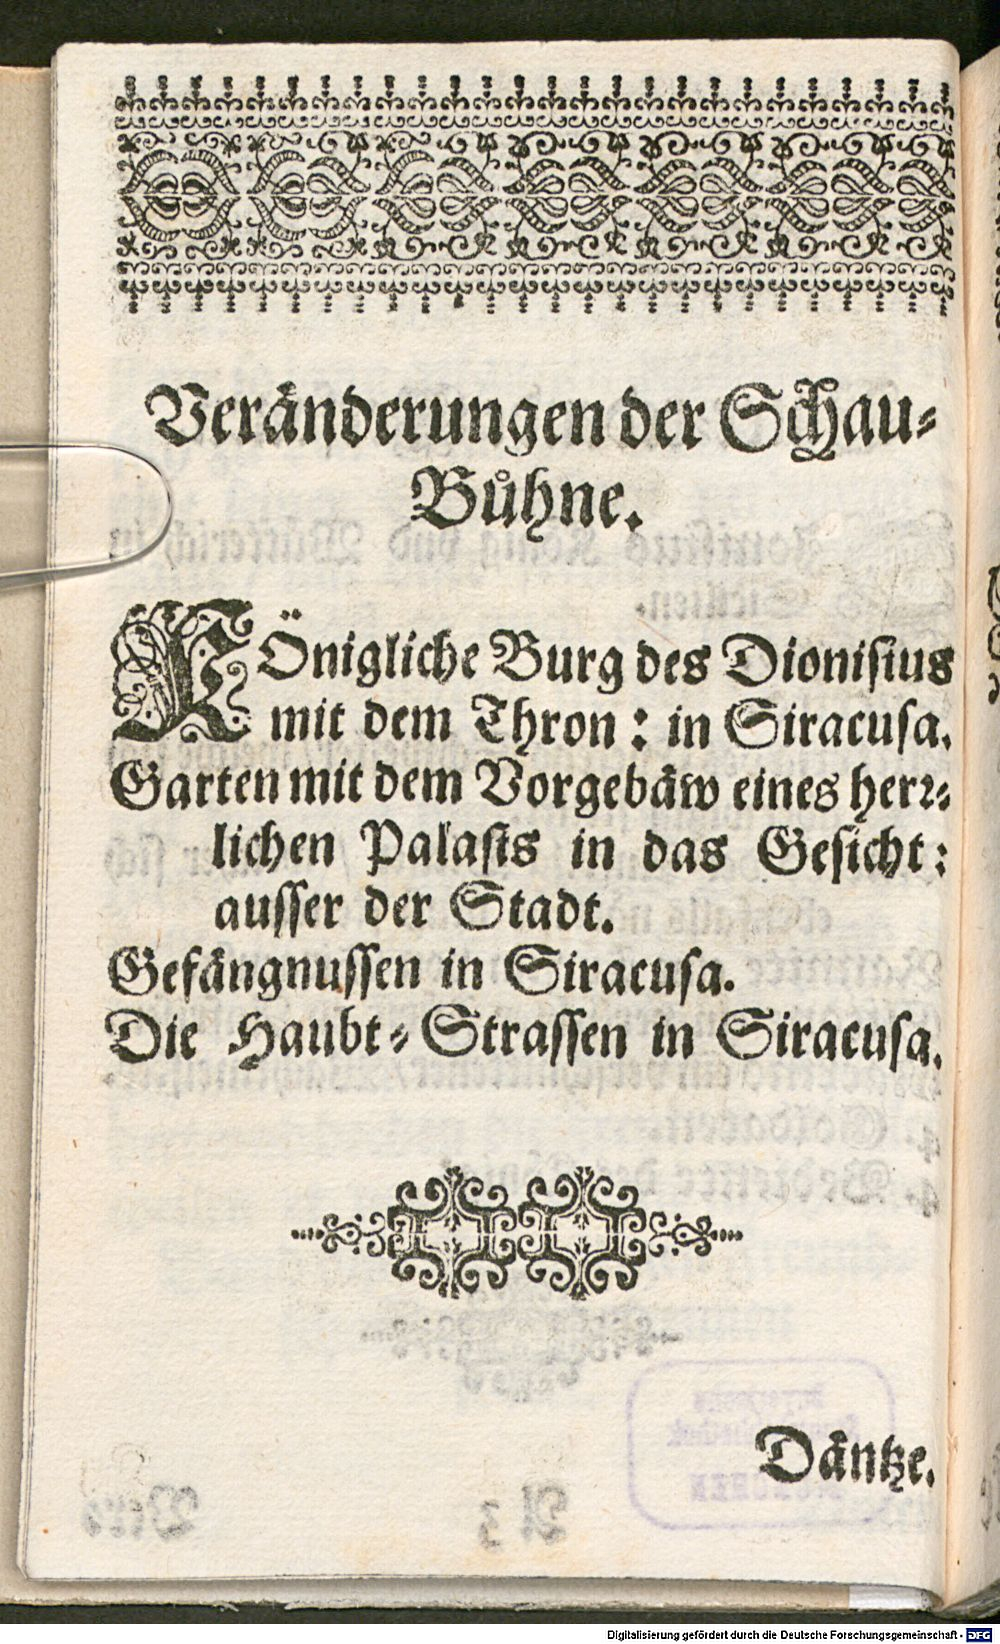 Veränderungen der Schau-
Bůhne.
KÖnigliche Burg des Dionisius
mit dem Thron: in Siracusa.
Garten mit dem Vorgebäw eines herꝛ-
lichen Palasts in das Gesicht:
ausser der Stadt.
Gefängnussen in Siracusa.
Die Haubt-Strassen in Siracusa.
Däntze.
Digitalisierung gefördert durch die Deutsche Forschungsgemeinschaft - DFG